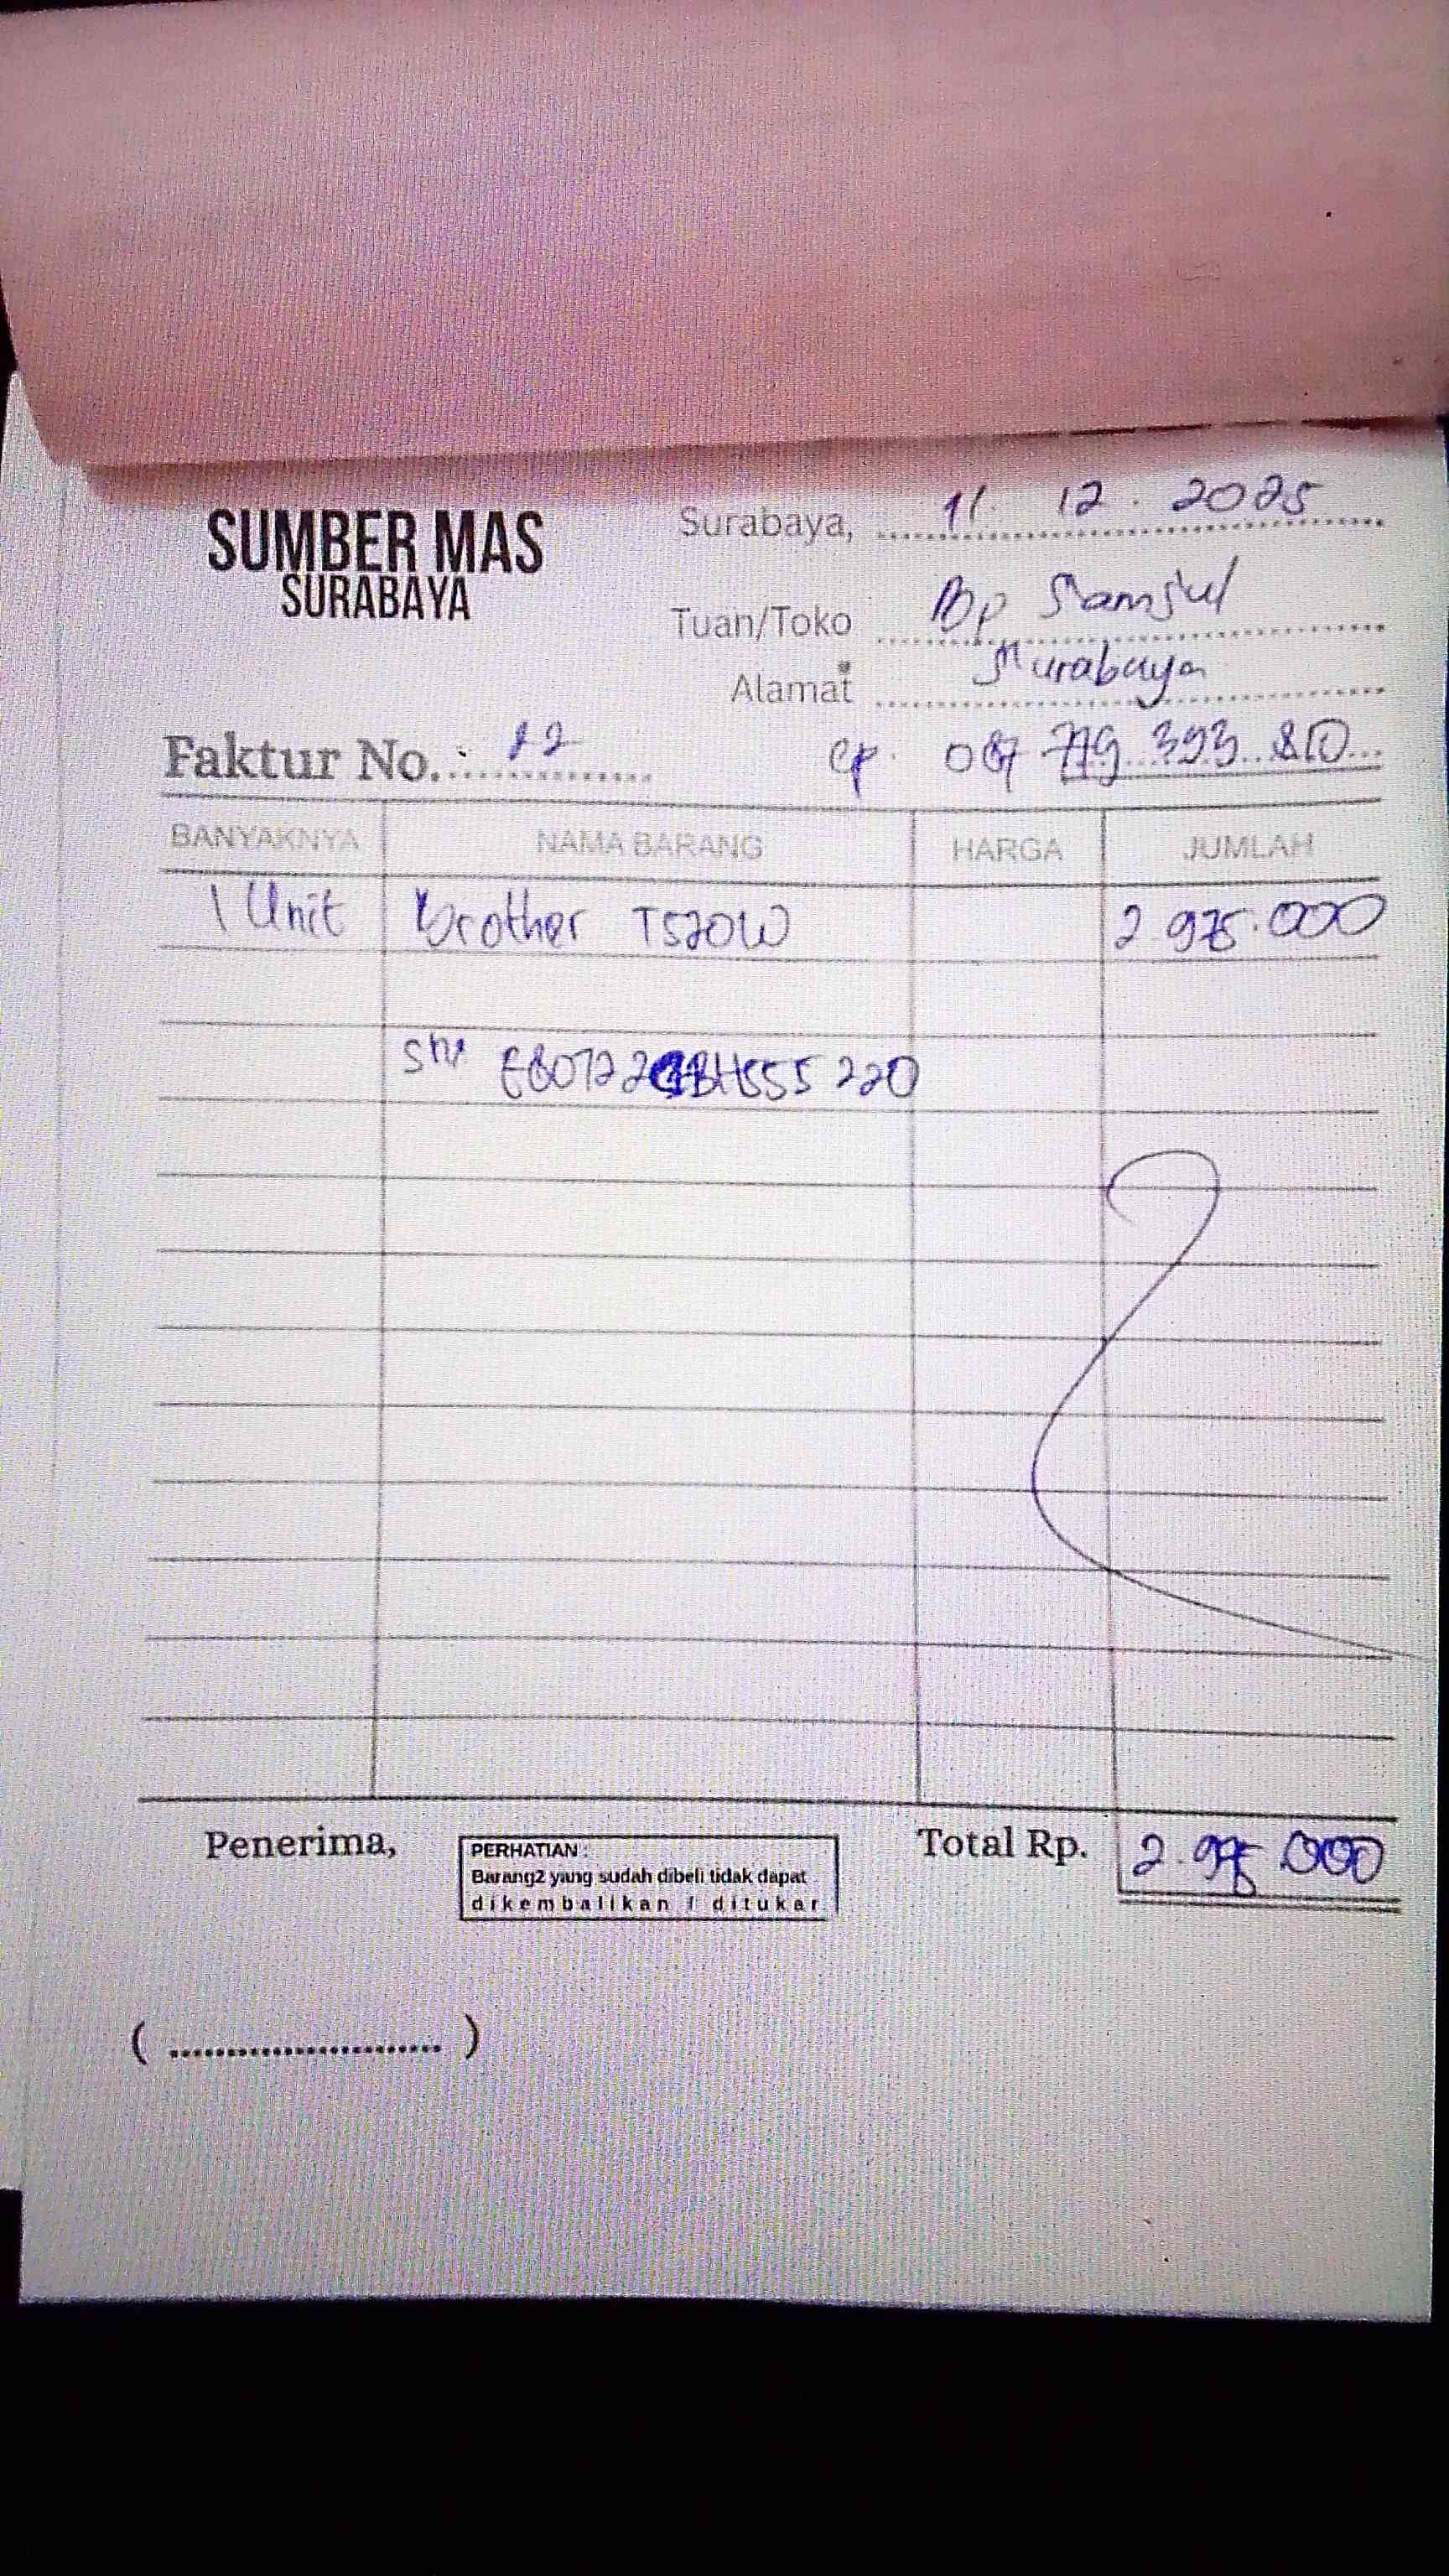 SUMBER MAS
SURABAYA
Surabaya, 11. 12. 2025
Tuan/Toko Bp Samsul
Alamat Surabaya
Faktur No. : 12
cp. 087 779 393 810
BANYAKNYA NAMA BARANG HARGA JUMLAH
1 Unit brother T520W 2.975.000
Sn:
Penerima,
PERHATIAN :
Barang2 yang sudah dibeli tidak dapat
dikembalikan / ditukar
Total Rp. 2.975.000
( ........................ )